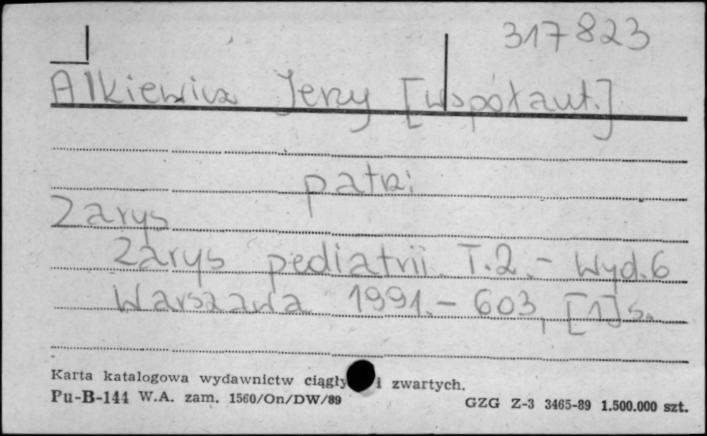 317823
Alkiewicz Jerzy [współaut.]
patrz:
Zarys
Zarys pediatrii. T.2.- Wyd.6
Warszawa 1991.- 603, [1]s.
Karta katalogowa wydawnictw ciągły i zwartych.
Pu-B-144 W.A. zam. 1560/On/DW/89 GZG Z-3 3465-89 1.500.000 szt.